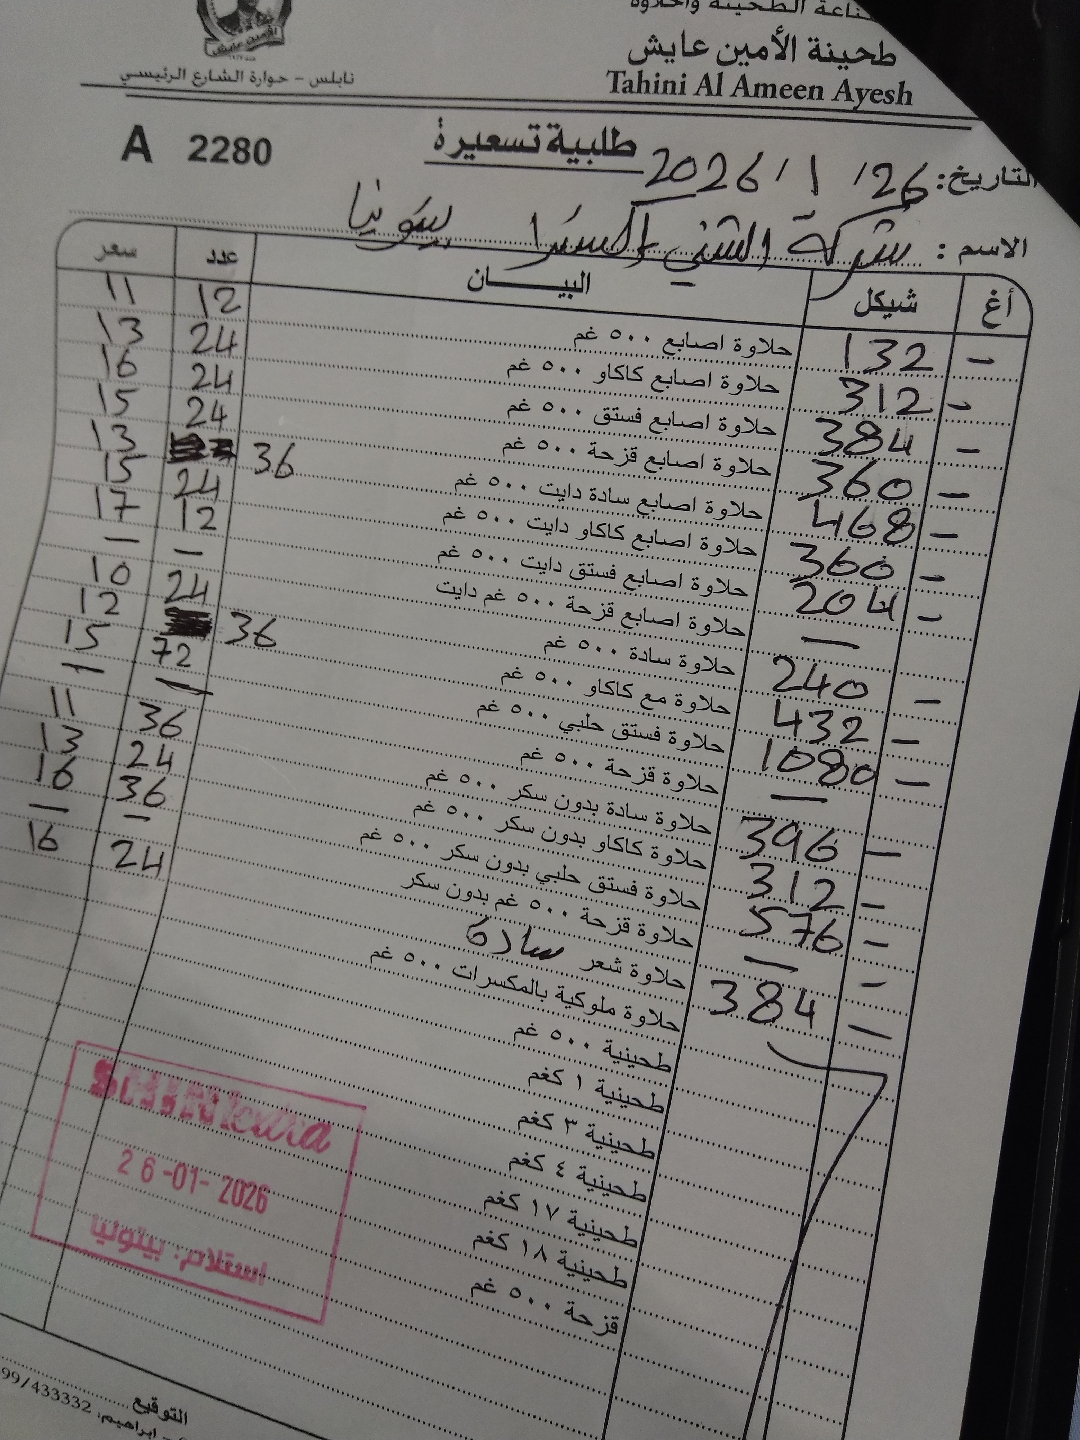 طحينة الأمين عايش
Tahini Al Ameen Ayesh
الأمين عايش
نابلس - حوارة الشارع الرئيسي
A 2280
طلبية تسعيرة
التاريخ: 26 / 1 / 2026
الاسم : شركة الشني إكسترا بيتونيا
أغ شيكل البيــــــان عدد سعر
- 132 حلاوة اصابع ٥٠٠ غم 12 11
- 312 حلاوة اصابع كاكاو ٥٠٠ غم 24 13
- 384 حلاوة اصابع فستق ٥٠٠ غم 24 16
- 360 حلاوة اصابع قزحة ٥٠٠ غم 24 15
- 468 حلاوة اصابع سادة دايت ٥٠٠ غم 36 13
- 360 حلاوة اصابع كاكاو دايت ٥٠٠ غم 24 15
- 204 حلاوة اصابع فستق دايت ٥٠٠ غم 12 17
- حلاوة اصابع قزحة ٥٠٠ غم دايت - -
- 240 حلاوة سادة ٥٠٠ غم 24 10
- 432 حلاوة مع كاكاو ٥٠٠ غم 36 12
- 1080 حلاوة فستق حلبي ٥٠٠ غم 72 15
- حلاوة قزحة ٥٠٠ غم - -
- 396 حلاوة سادة بدون سكر ٥٠٠ غم 36 11
- 312 حلاوة كاكاو بدون سكر ٥٠٠ غم 24 13
- 576 حلاوة فستق حلبي بدون سكر ٥٠٠ غم 36 16
- - حلاوة قزحة ٥٠٠ غم بدون سكر - -
- 384 حلاوة شعر سادة 24 16
حلاوة ملوكية بالمكسرات ٥٠٠ غم
طحينية ٥٠٠ غم
طحينية ١ كغم
طحينية ٣ كغم
طحينية ٤ كغم
طحينية ١٧ كغم
طحينية ١٨ كغم
قزحة ٥٠٠ غم
26-01-2026
استلام: بيتونيا
التوقيع
99/433332
ابراهيم: